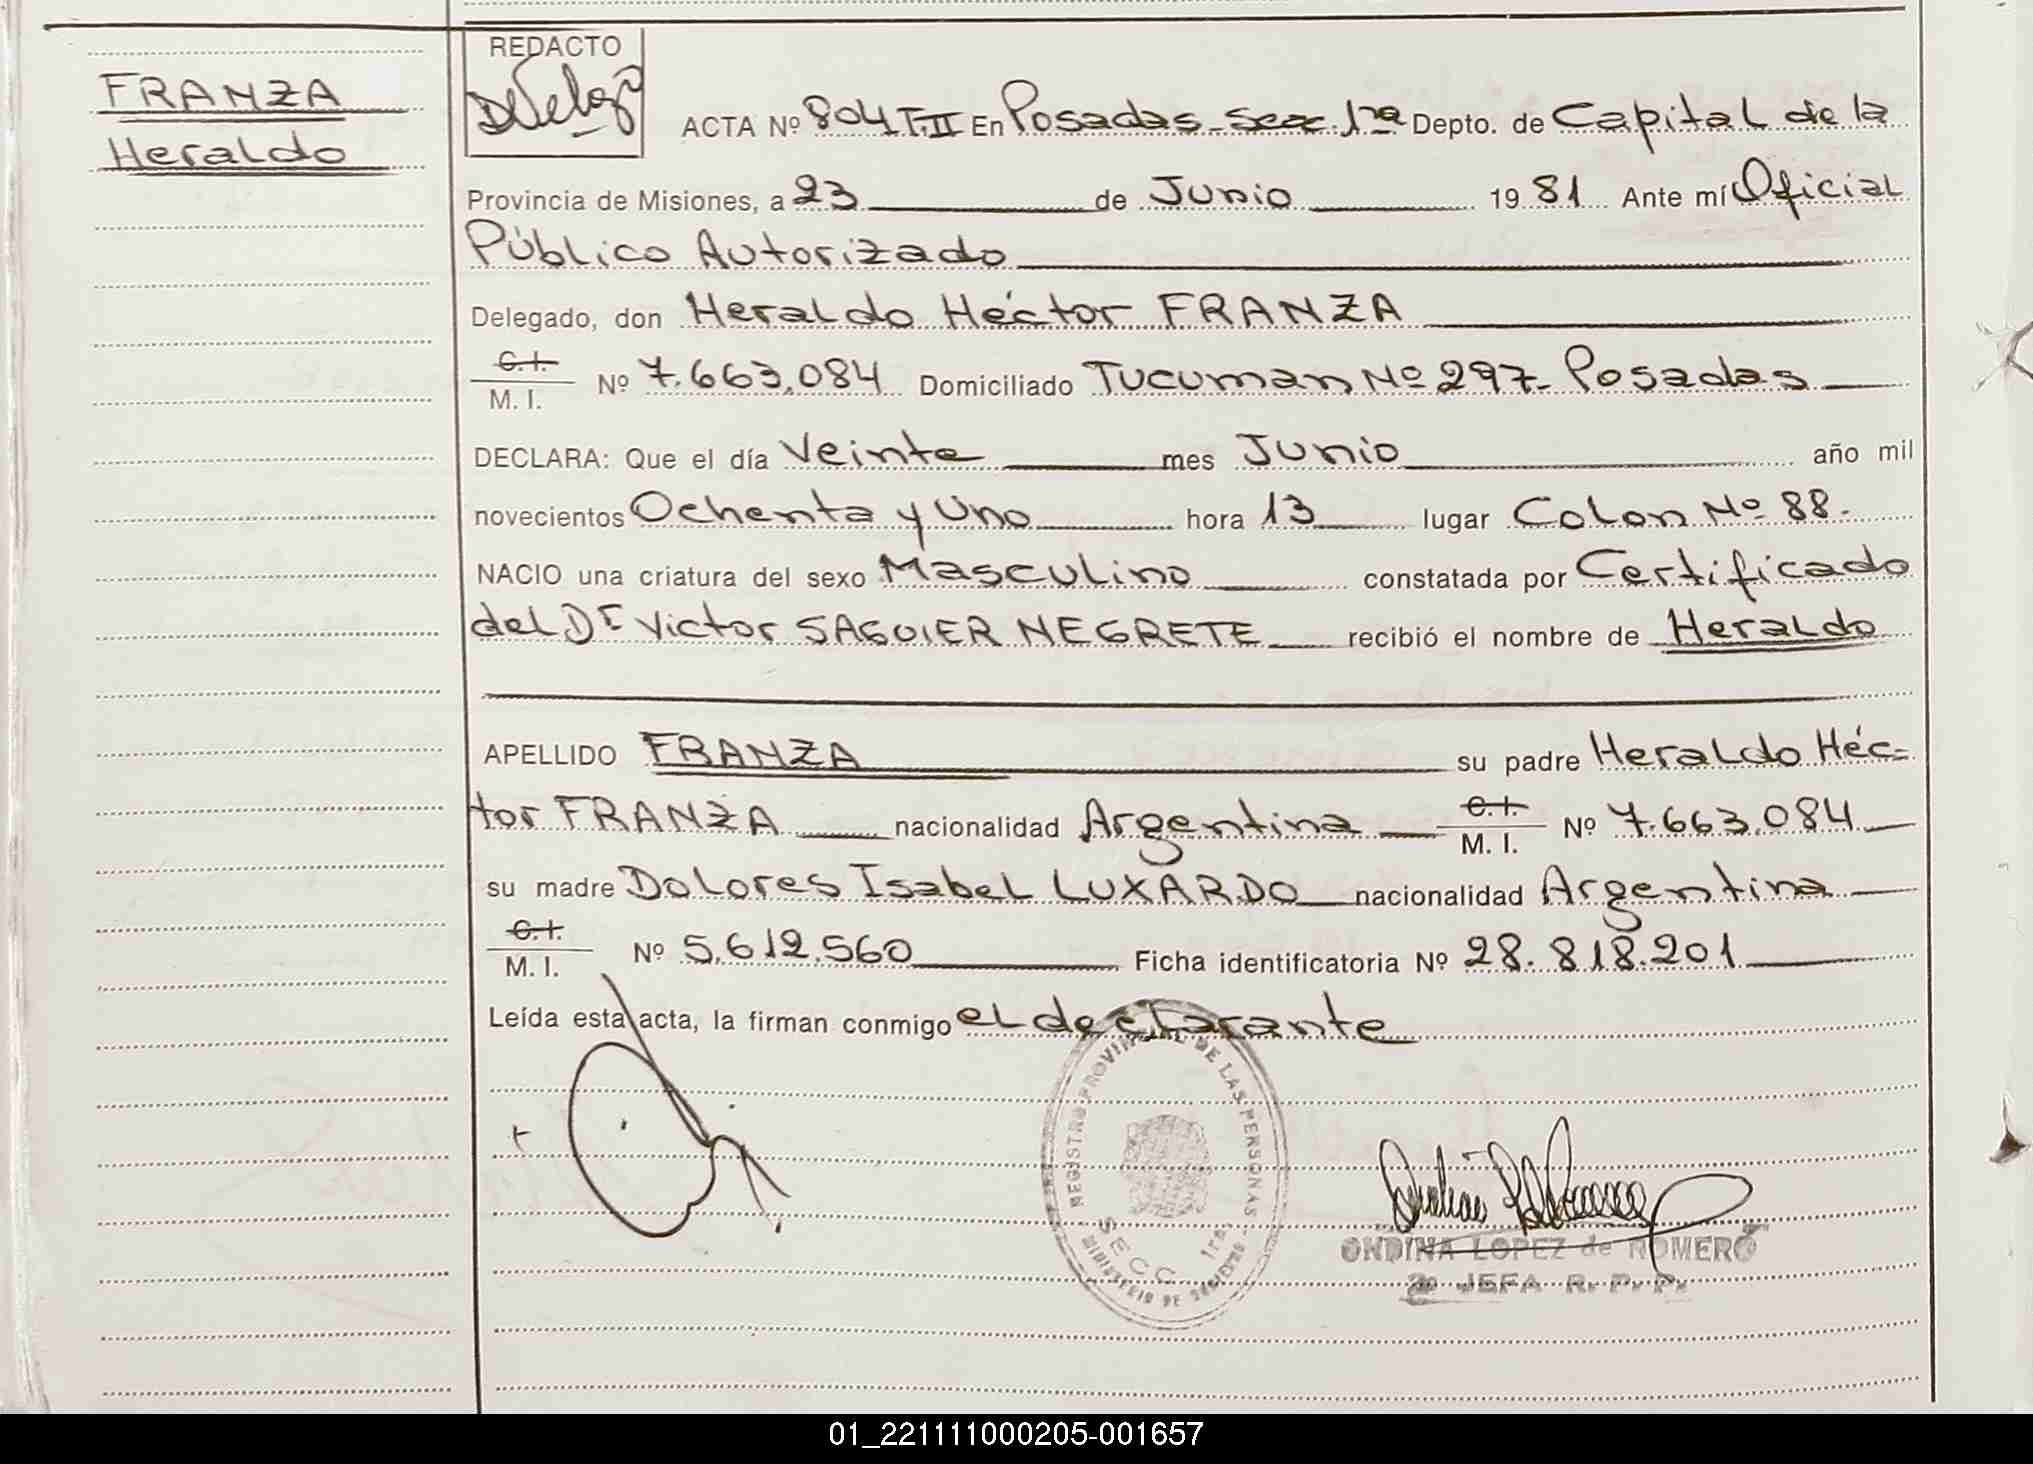 FRANZA
Heraldo
REDACTO
ACTA Nº 804 T.II En Posadas-Secc. 1ra Depto. de Capital de la
Provincia de Misiones, a 23 de Junio 1981 Ante mí Oficial
Público Autorizado
Delegado, don Heraldo Héctor FRANZA
C.I.
M. I. Nº 7.663.084 Domiciliado Tucuman Nº 297- Posadas
DECLARA: Que el día Veinte mes Junio año mil
novecientos Ochenta y Uno hora 13 lugar Colon Nº 88.
NACIO una criatura del sexo Masculino constatada por Certificado
del Dr Victor SAGUIER NEGRETE recibió el nombre de Heraldo
APELLIDO FRANZA su padre Heraldo Héc=
tor FRANZA nacionalidad Argentina C.I. M. I. Nº 7.663.084
su madre Dolores Isabel LUXARDO nacionalidad Argentina
C.I.
M. I. Nº 5.612.560 Ficha identificatoria Nº 28.818.201
Leída esta acta, la firman conmigo el declarante
REGISTRO PROVINCIAL DE LAS PERSONAS
SECC. 1ra.
MINISTERIO DE
ONDINA LOPEZ de ROMERO
2º JEFA R. P. P.
01_221111000205-001657